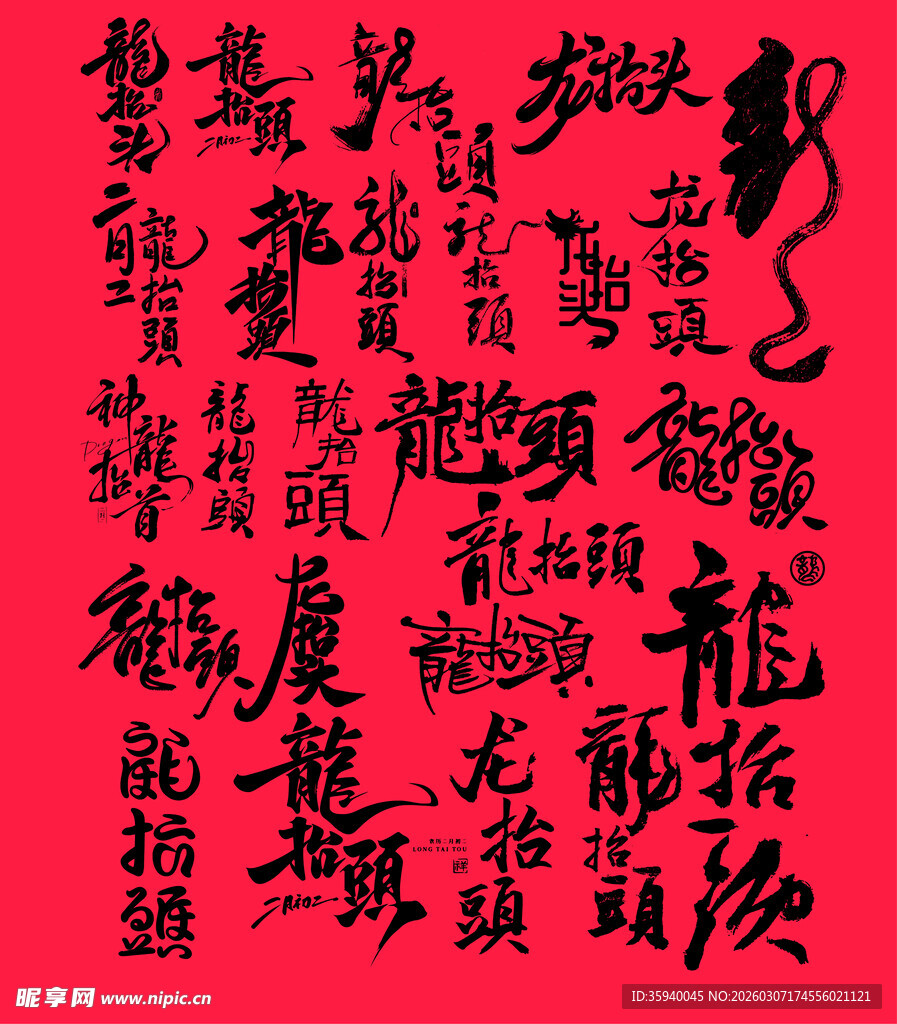 龍抬头
龍抬頭
二月初二
龍抬頭
龙抬头
二月二
龍抬頭
龍抬頭
龍抬頭
龍抬頭
龙抬头
龙抬頭
神龍抬首
龍抬頭
龍抬頭
龍抬頭
龍抬頭
龍抬頭
龍抬頭
龍抬頭
龙抬头
龍抬頭
龍抬頭
龍抬頭
二月初二
龙抬頭
农历二月初二
LONG TAI TOU
龍抬頭
昵享网 www.nipic.cn
ID:35940045 NO:20260307174556021121